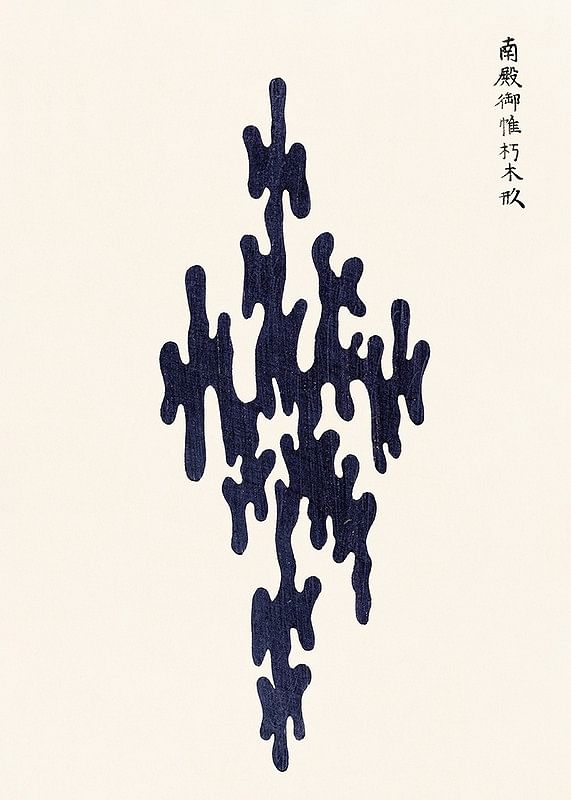 南殿御帷朽木形